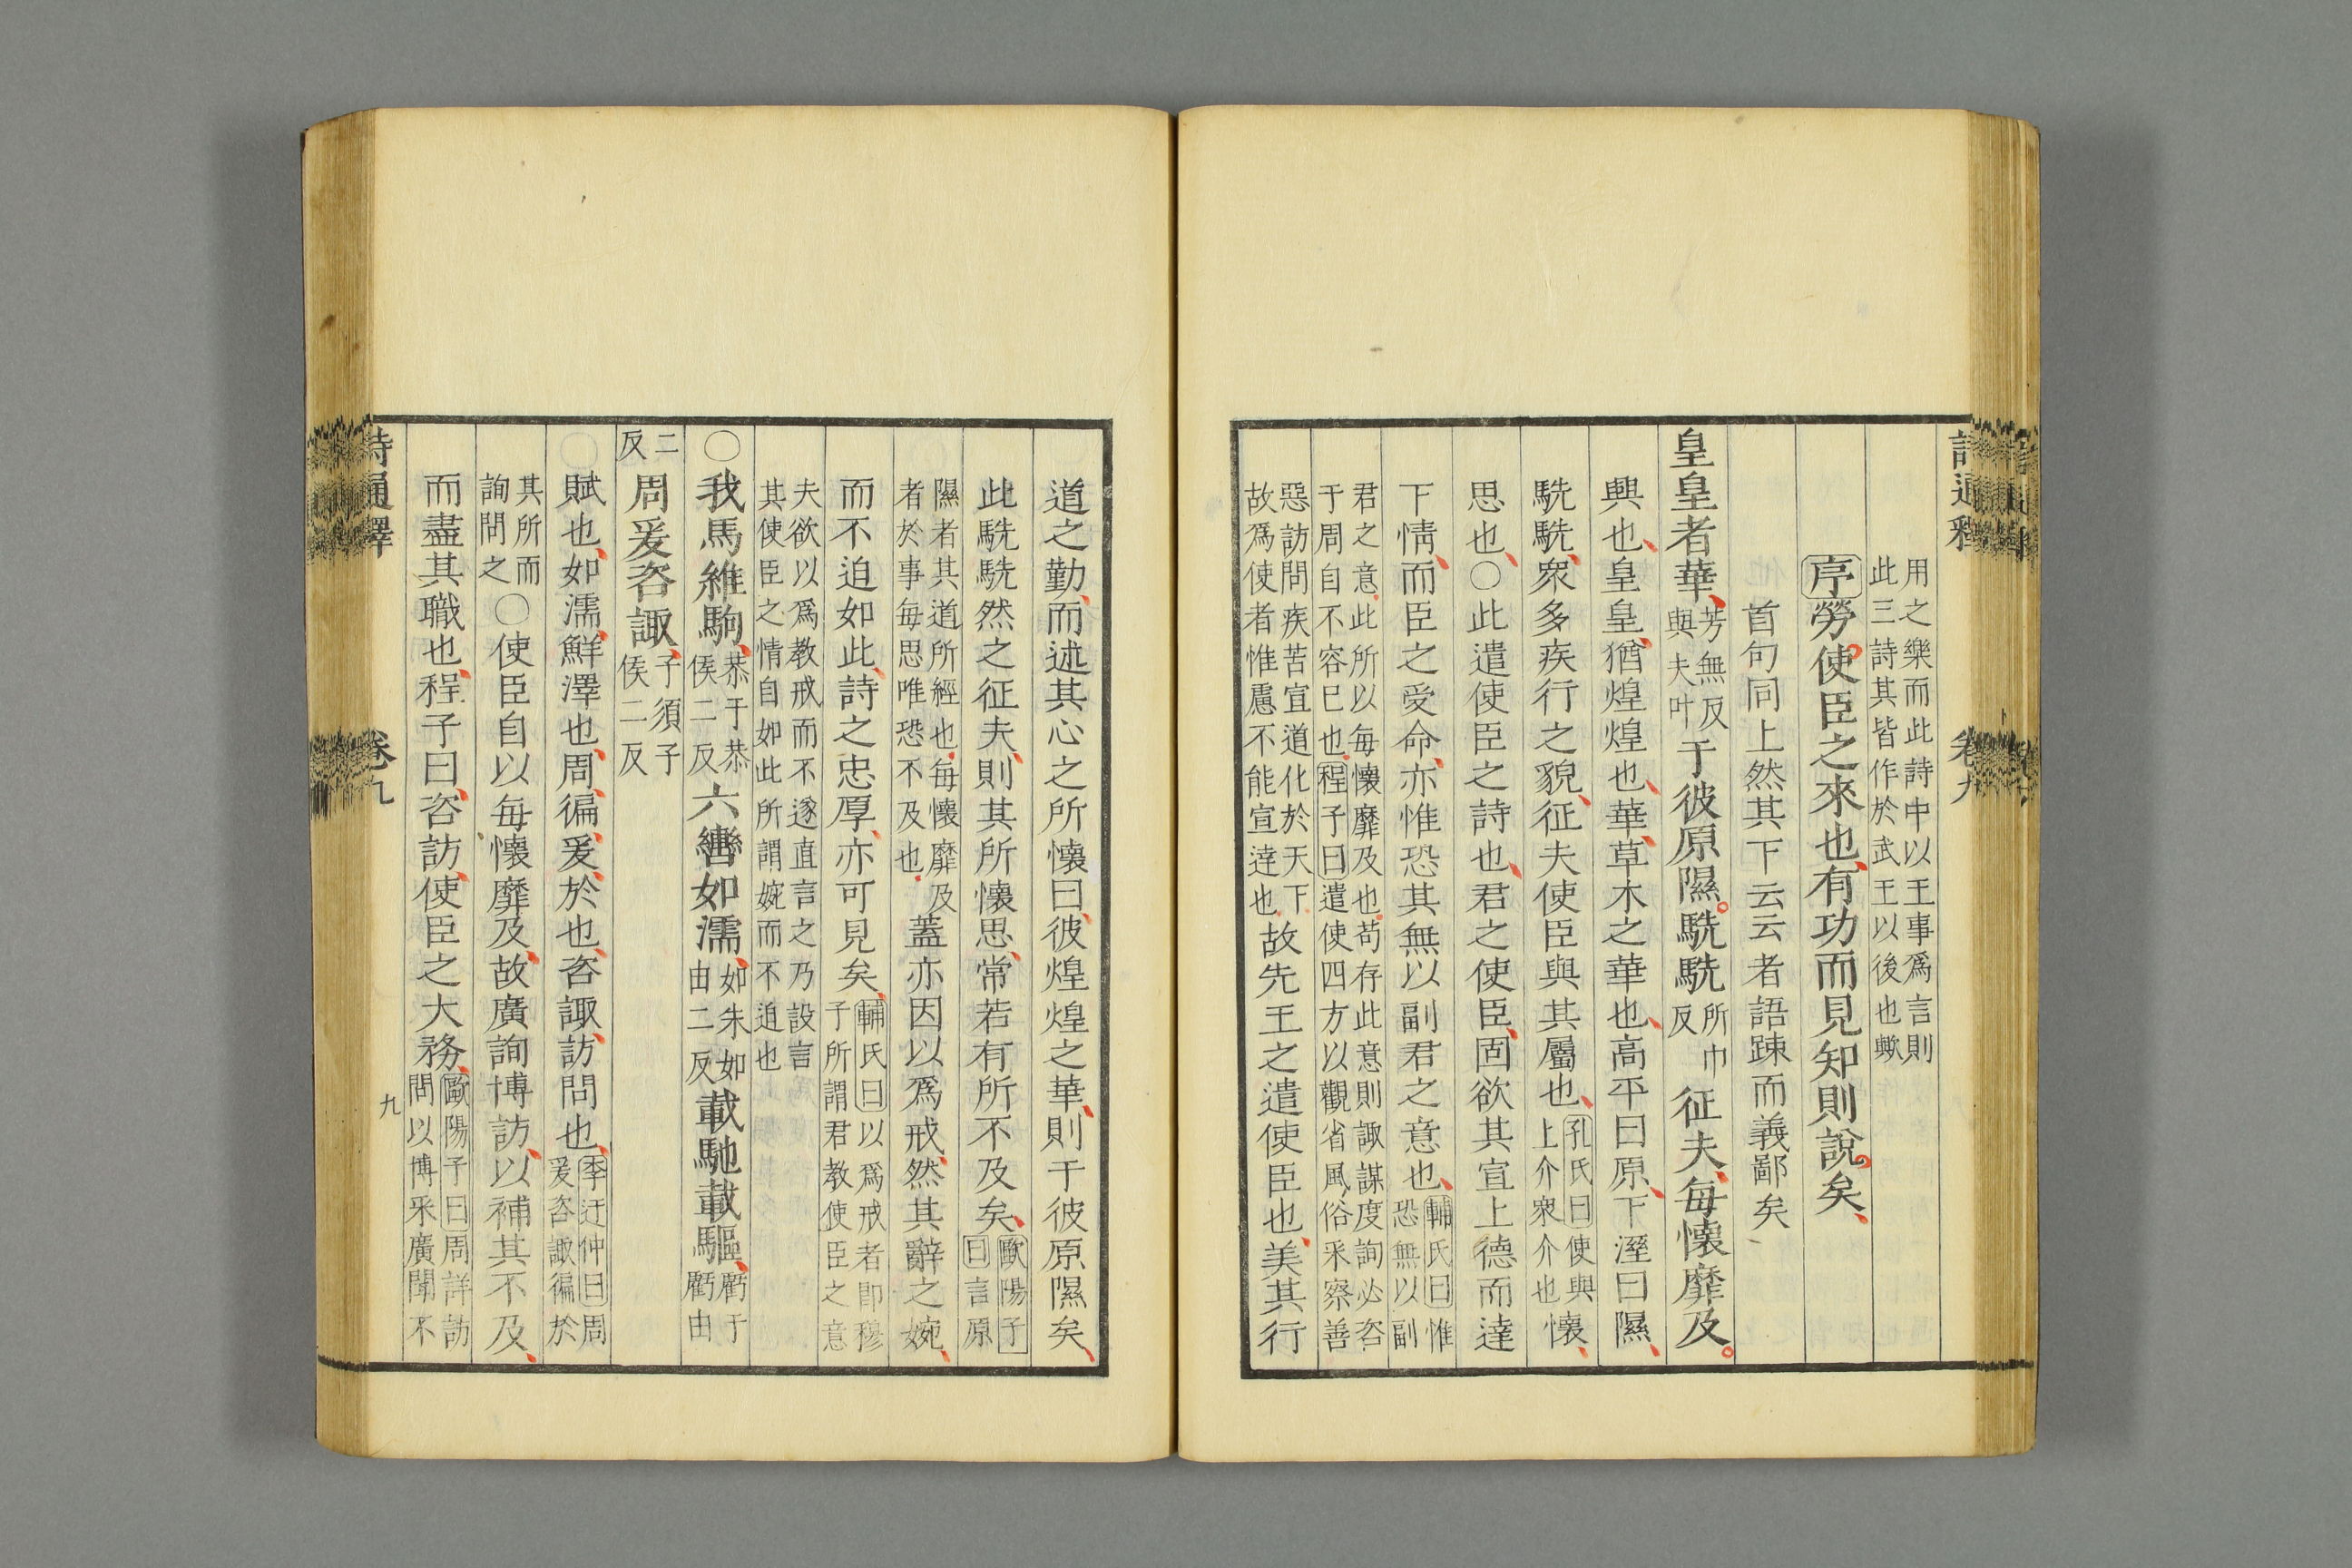 用之樂而此詩中以王事爲言則
此三詩其皆作於武王以後也歟
序勞使臣之來也有功而見知則說矣
首句同上然其下云云者語踈而義鄙矣
皇皇者華芳無反與夫叶于彼原隰駪駪所巾反征夫每懷靡及
興也皇皇猶煌煌也華草木之華也高平曰原下溼曰隰
駪駪衆多疾行之貌征夫使臣與其屬也孔氏曰使與上介衆介也懷
思也○此遣使臣之詩也君之使臣固欲其宣上德而達
下情而臣之受命亦惟恐其無以副君之意也輔氏曰惟恐無以副
君之意此所以每懷靡及也苟存此意則諏謀度詢必咨
于周自不容已也程子曰遣使四方以觀省風俗采察善
惡訪問疾苦宣道化於天下故先王之遣使臣也美其行
故爲使者惟慮不能宣達也
道之勤而述其心之所懷曰彼煌煌之華則于彼原隰矣
此駪駪然之征夫則其所懷思常若有所不及矣歐陽子曰言原
隰者其道所經也每懷靡及
者於事每思唯恐不及也蓋亦因以爲戒然其辭之婉
而不迫如此詩之忠厚亦可見矣輔氏曰以爲戒者即穆子所謂君教使臣之意
夫欲以爲教戒而不遂直言之乃設言
其使臣之情自如此所謂婉而不迫也
○我馬維駒恭于恭侯二反六轡如濡如朱如由二反載馳載驅虧于虧由
二反周爰咨諏子須子侯二反
賦也如濡鮮澤也周徧爰於也咨諏訪問也季迂仲曰周爰咨諏徧於
其所而詢問之○使臣自以每懷靡及故廣詢博訪以補其不及
而盡其職也程子曰咨訪使臣之大務歐陽子曰周詳訪問以博采廣聞不
詩通釋
卷九
九